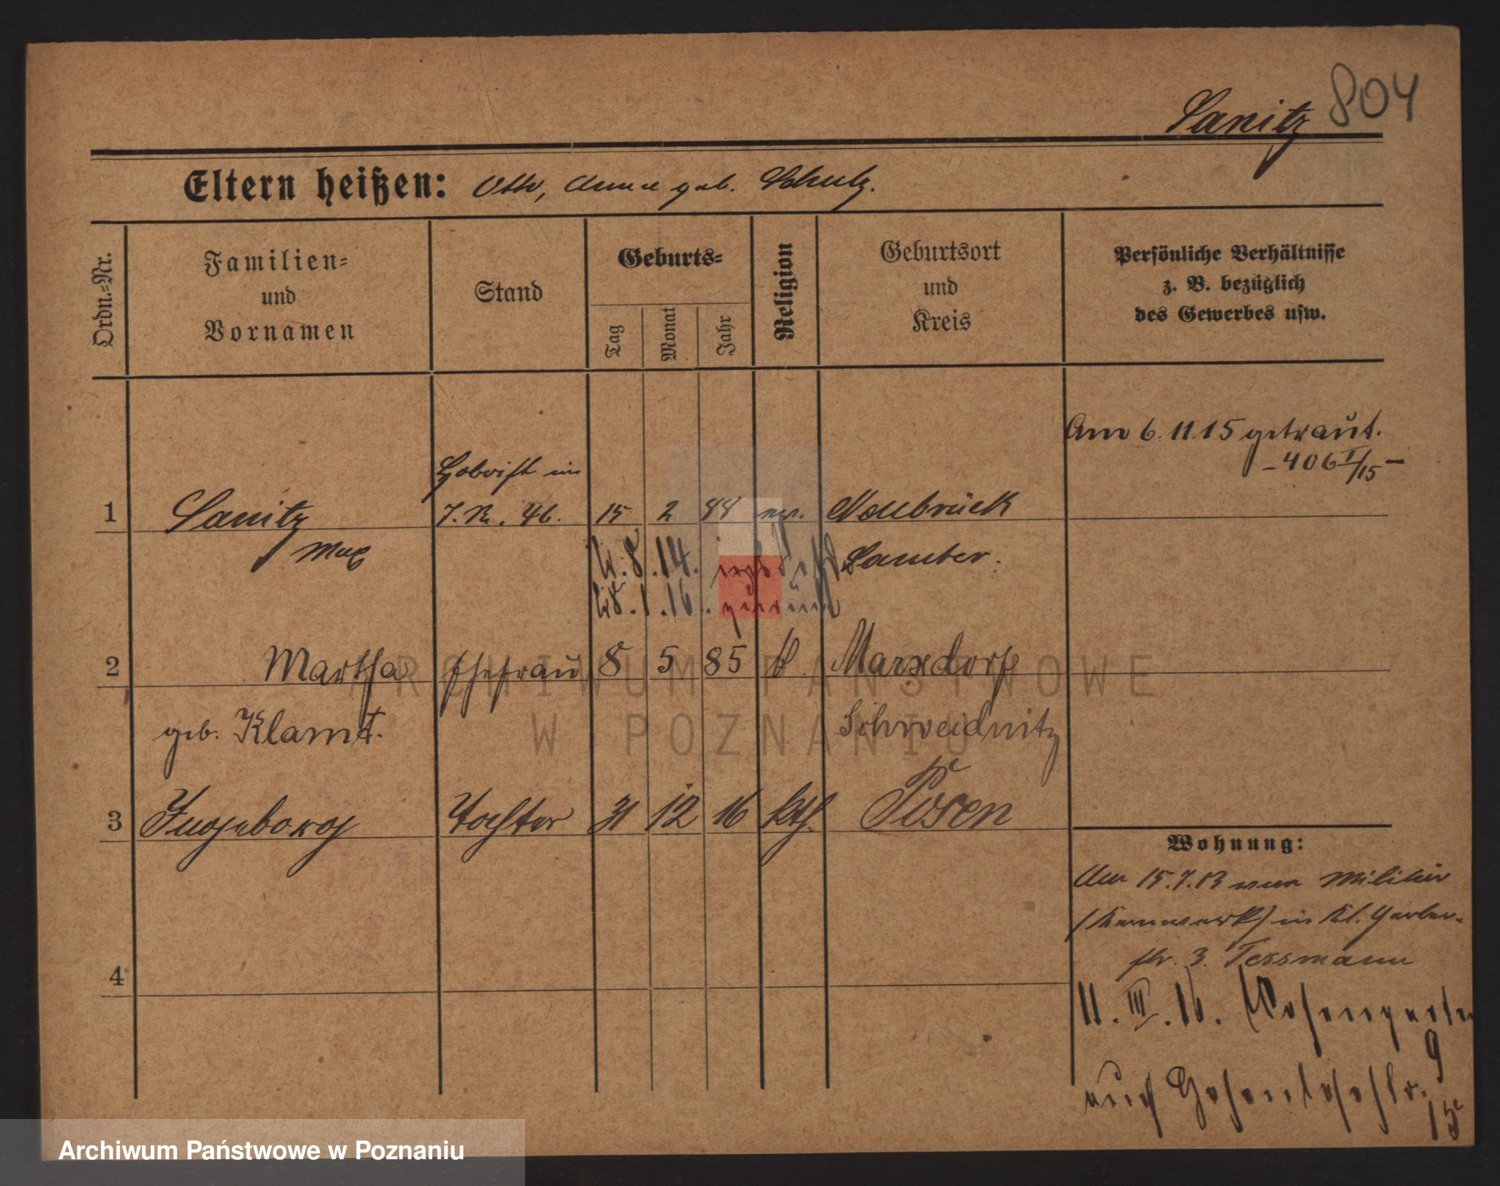 Sanitz 804
Eltern heißen: Otto, Anna geb. Schulz.
Ordn.-Nr.
Familien-
und
Vornamen
Stand
Geburts-
Tag
Monat
Jahr
Religion
Geburtsort
und
Kreis
Persönliche Verhältnisse
z. B. bezüglich
des Gewerbes usw.
Am 6.11.15 getraut.
-406 I/15-
1 Sanitz Hoboist im
J.R. 46. 15 2 88 ev. Neubrück
Max Samter.
8.14.
8.1.16. zurück
2 Martha Ehefrau 8 5 85 k Marxdorf
geb. Klamt. Schweidnitz
3 Ingeborg Tochter 31 12 16 kth. Posen
4
Wohnung:
Am 15.7.13 vom Militär
(Kernwerk) in Kl. Gerber-
str. 3. Tessmann
11.III.16.
9
nach Hohenlohestr.
15
ARCHIWUM PAŃSTWOWE
W POZNANIU
Archiwum Państwowe w Poznaniu